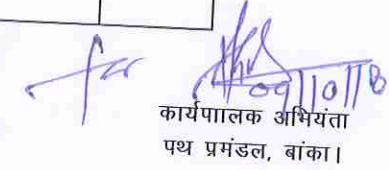 09/10/18
कार्यपाालक अभियंता
पथ प्रमंडल, बांका।